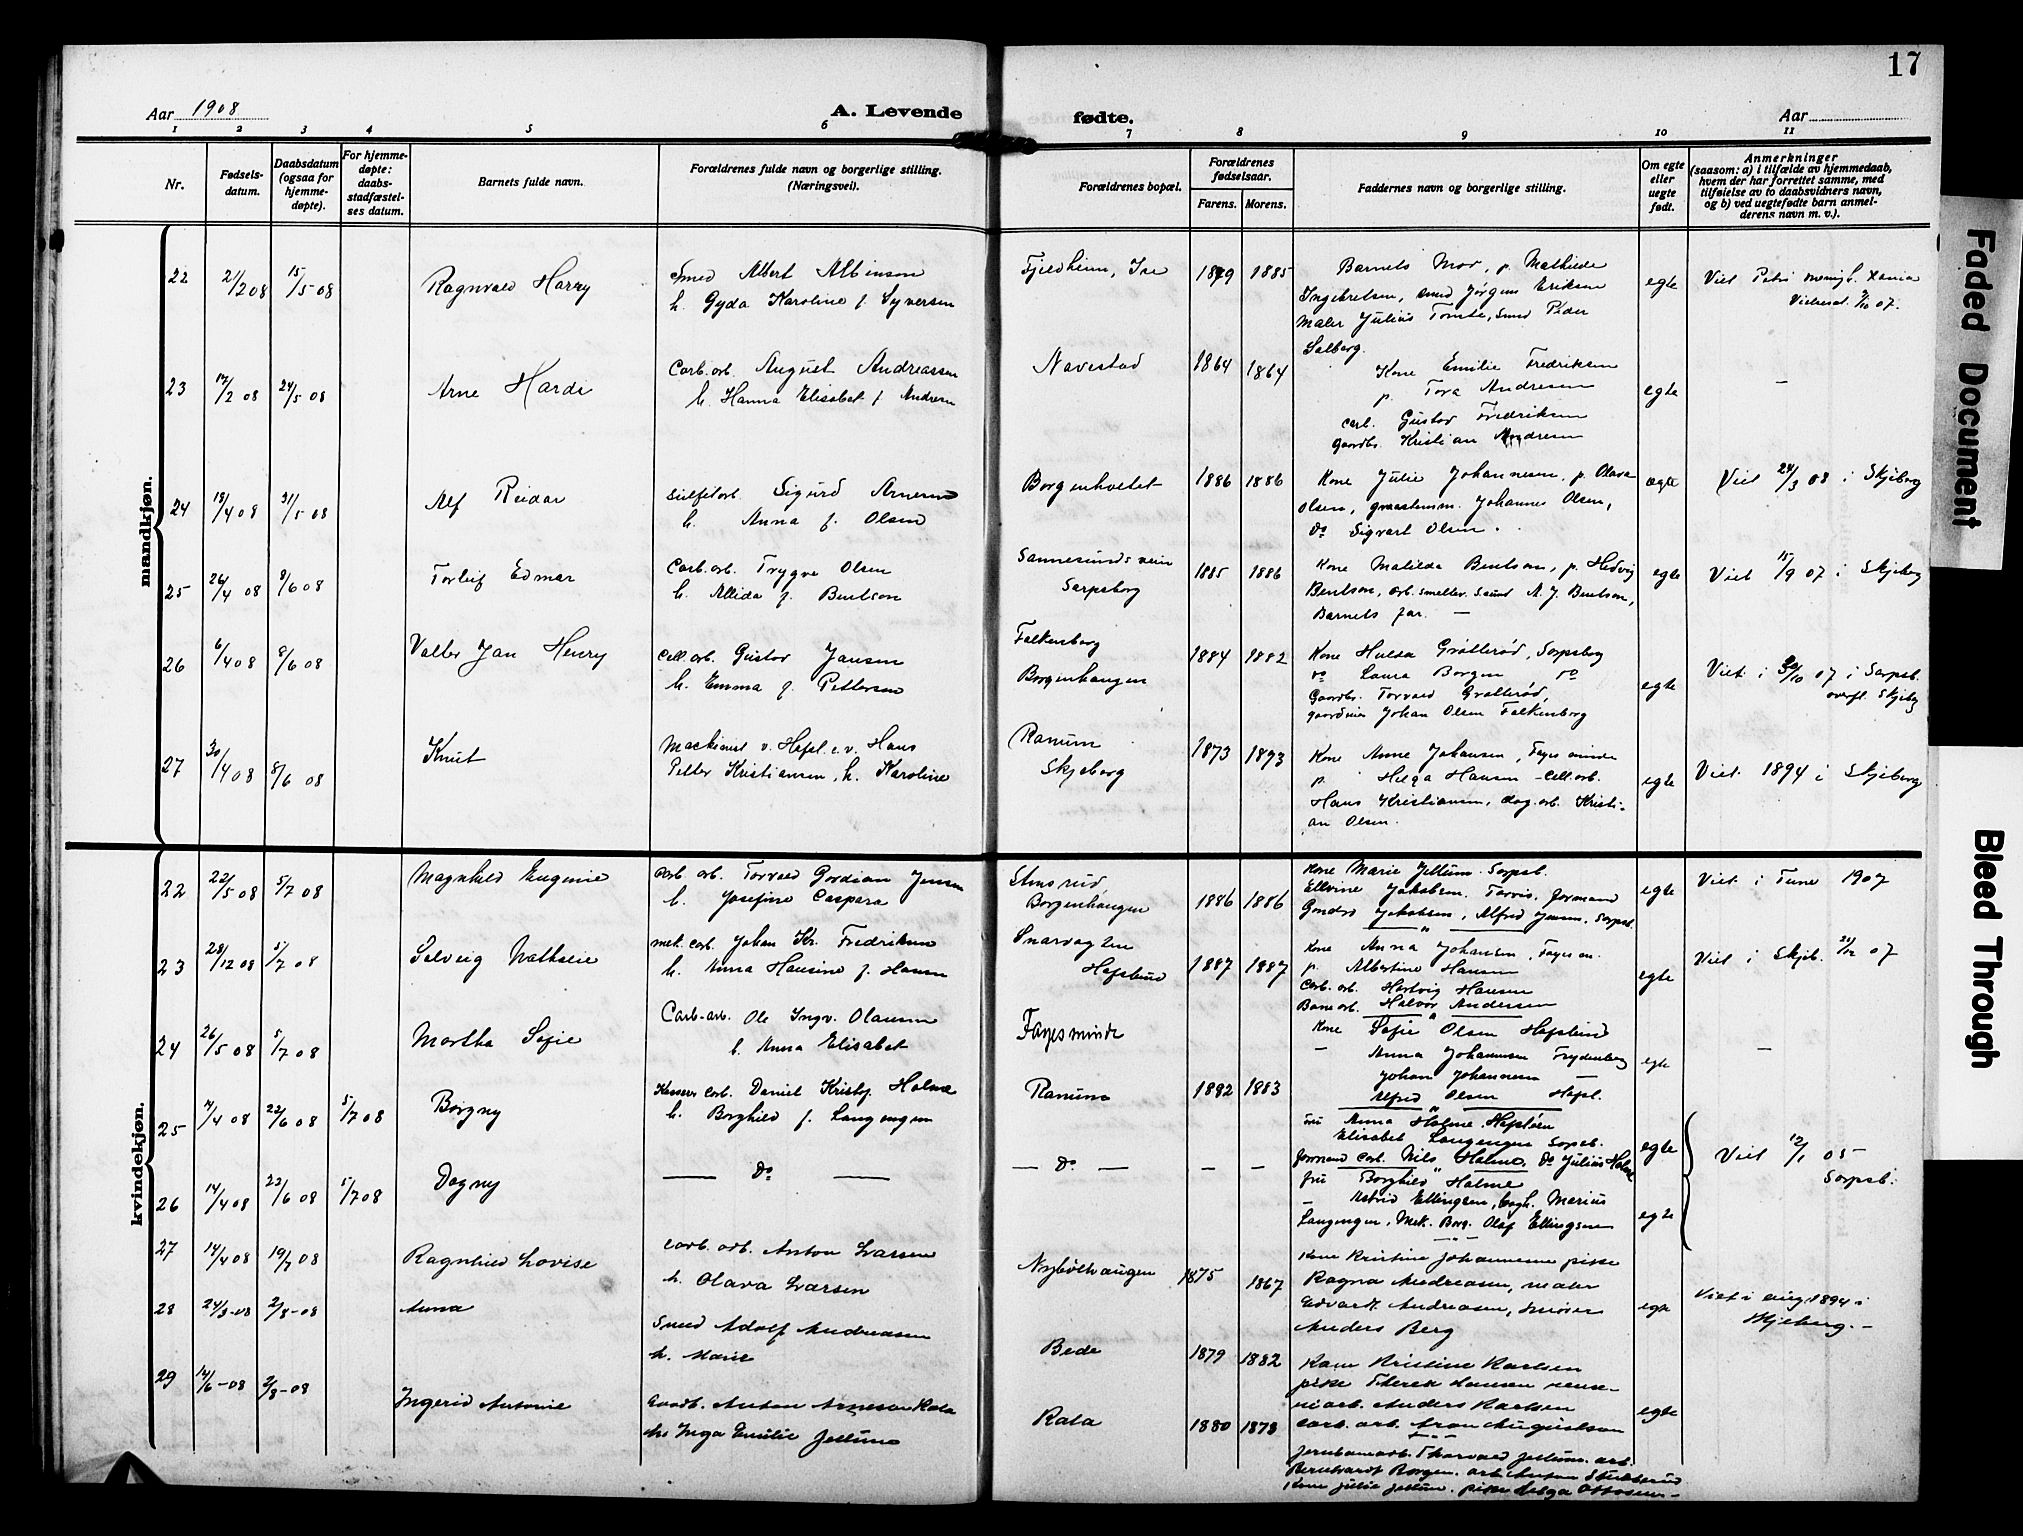 17
Aar 1908
A. Levende
fødte.
Aar
1 2 3 4 5 6 7 8 9 10 11
Nr.
Fødsels-
datum.
Daabsdatum
(ogsaa for
hjemme-
døpte).
For hjemme-
døpte:
daabs-
stadfæstel-
ses datum.
Barnets fulde navn.
Forældrenes fulde navn og borgerlige stilling.
(Næringsvei).
Forældrenes bopæl.
Forældrenes
fødselsaar.
Farens. Morens.
Faddernes navn og borgerlige stilling.
Om egte
eller
uegte
født.
Anmerkninger
(saasom: a) i tilfælde av hjemmedaab,
hvem der har forrettet samme, med
tilføielse av to daabsvidners navn,
og b) ved uegtefødte barn anmel-
derens navn m. v.).
mandkjøn.
22 2/2 08 15/5 08 Ragnvald Harry
Smed Albert Albinson
h. Gyda Karoline f. Syversen
Fjeldheim, Ise 1879 1885
Barnets Mor, p. Mathilde
Ingebretsen, smed Jørgen Eriksen
Maler Julius Tomte, Smed Peder
Solberg.
egte
Viet Petri menigh. Xania
07.
23 17/2 08 24/5 08 Arne Hardi
Carb. arb. August Andreassen
h. Hanna Elisabet f. Andresen
Navestad 1864 1864
Kone Emilie Fredriksen
p. Tora Andresen
carb. Gustav Fredriksen
gaardbr. Kristian Andresen
egte
—
24 18/4 08 31/5 08 Alf Reidar
Sulfitarb. Sigurd Arnesen
h. Anna f. Olsen
Borgenholtet 1886 1886
Kone Julie Johannesen, p. Olava
Olsen, graastensm. Johannes Olsen,
do Sigvart Olsen.
egte
Viet 24/3 08 i Skjeberg
25 26/4 08 8/6 08 Torleif Edmar
Carb. arb. Trygve Olsen
h. Allida f. Bentson
Sannesundsveien
Sarpsborg
1885 1886
Kone Matilda Bentson, p. Hedvig
Bentson, arb. A. J. Bentson,
Barnets far. —
egte
Viet 15/9 07 i Skjeberg
26 6/4 08 8/6 08 Valter Jan Henry
Cell. arb. Gustav Jansen
h. Emma f. Pettersen
Falkenborg
Borgenhaugen
1884 1882
Kone Hulda Grøtterød, Sarpsborg
do Laura Borgen do
Gaardbr. Torvald Grøtterød,
gaardeier Johan Olsen Falkenborg
egte
Viet i 20/10 07 i Sarpsb.
overfl. Skjeberg
27 30/4 08 8/6 08 Knut
Maskinist v. Hafsl. c. v. Hans
Petter Kristiansen, h. Karoline
Ranum
Skjeberg
1873 1873
Kone Anne Johansen, Fagesminde
p. Helga Hansen - Cell. arb.
Hans Kristiansen, dag. arb. Kristi-
an Olsen.
egte
Viet 1894 i Skjeberg
kvindekjøn.
22 22/5 08 5/7 08 Magnhild Eugenie
Carb arb. Torvald Gordian Jensen
h. Josefine Caspara
Borgenhaugen
1886 1886
Kone Marie Jellum. Sarpsb.
Ellvine Jakobsen. Torvis, Formand
Jakobsen, Alfred Jensen, Sarpsb.
egte
Viet i Tune 1907
23 28/12 08 5/7 08 Solveig Nathalie
Mek. carb. Johan Kr. Fredriksen
h. Anna Hansine f. Hansen
Hafslund
1887 1887
Kone Anna Johansen, Fagesm.
p. Albertine Hansen
Carb. arb. Hartvig Hansen
Bane arb. Halvor Andersen
egte
Viet i Skjeb. 07
24 26/5 08 5/7 08 Martha Sofie
Carb-arb. Ole Ingv. Olausen
h. Anna Elisabet
Fagesminde
Kone Sofie Olsen Hafslund
— Anna Johannesen Frydenberg
Johan Johannesen —
Alfred Olsen Hafsl.
egte
—
25 7/4 08 22/6 08 5/7 08 Borgny
Carb. Daniel Kristof Holme
h. Borghild f. Langengen
Ranum 1882 1883
Fru Anna Holme, Hafslund
Elisabet Langengen Sarpsb.
Formand Carb. Nils Holme, do Julius Holme
egte
Viet 12/1 05
Sarpsb.
26 14/4 08 22/6 08 5/7 08 Dagny
— do —
— do — — —
Fru Borghild Holme
— Astrid Ellingsen, Marius
Langengen, Mek. Borg. Olaf Ellingsen
egte
27 14/4 08 19/7 08 Ragnhild Lovise
Carb. arb. Anton Larsen
h. Olava Larsen
Nybølhaugen 1875 1867
Kone Kristine Johannesen pike
Ragna Andreasen, maler
Edvardt Andreasen, snekker
Anders Berg
egte
Viet i aug 1894 i
Skjeberg. —
28 24/3-08 2/8-08 Anna
Smed Adolf Andreasen
h. Marie
Bede 1879 1882
Kone Kristine Karlsen
pike Therese Hansen
arb. Anders Karlsen
carb. arb. Aron Augustson
egte
29 14/6-08 2/8-08 Ingerid Antonie
Gaardb. Anton Arneson Kala
h. Inga Emilie Jellum
Kala 1880 1878
Jernbanearb. Thorvald Jellum. arb.
Bernhardt Borgen. arb. Anton Stubberud
Kone Julie Jellum. pike Helga Ottosen —
Faded Document
Bleed Through